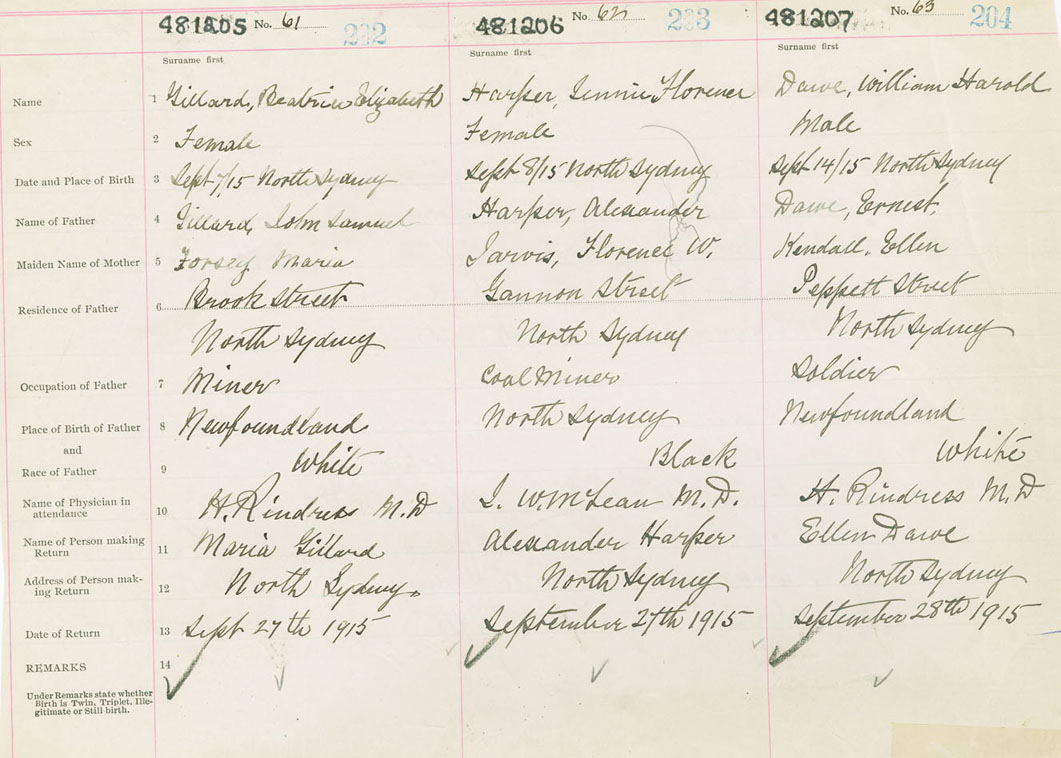 481205 No. 61 202 481206 No. 62 203 481207 No. 63 204
Surname first Surname first Surname first
Name 1 Gillard, Beatrice Elizabeth Harper, Jennie Florence Dawe, William Harold
Sex 2 Female Female Male
Date and Place of Birth 3 Sept 7/15 North Sydney Sept 8/15 North Sydney Sept 14/15 North Sydney
Name of Father 4 Gillard, John Samuel Harper, Alexander Dawe, Ernest.
Maiden Name of Mother 5 Forsey Maria Jarvis, Florence W. Kendall, Ellen
Residence of Father 6 Brook Street Gannon Street Peppett Street
North Sydney North Sydney North Sydney
Occupation of Father 7 Miner Coal Miner Soldier
Place of Birth of Father 8 Newfoundland North Sydney Newfoundland
and
Race of Father 9 White Black White
Name of Physician in
attendance 10 H. Rindress M.D I. W. McLean M.D. H. Rindress M.D
Name of Person making
Return 11 Maria Gillard Alexander Harper Ellen Dawe
Address of Person mak-
ing Return 12 North Sydney. North Sydney North Sydney
Date of Return 13 Sept 27th 1915 September 27th 1915 September 28th 1915
REMARKS 14
Under Remarks state whether
Birth is Twin, Triplet, Ille-
gitimate or Still-birth.